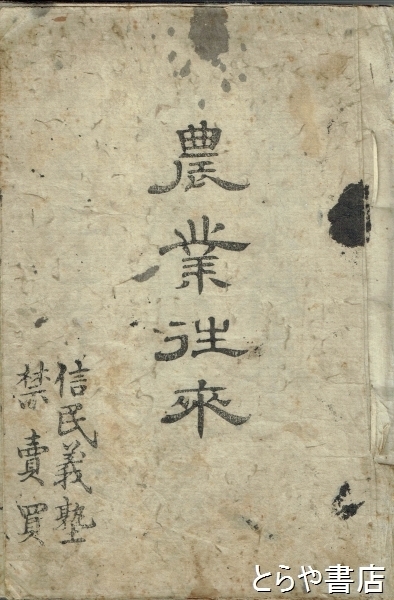 農業往來
信民義塾
禁賣買
とらや書店